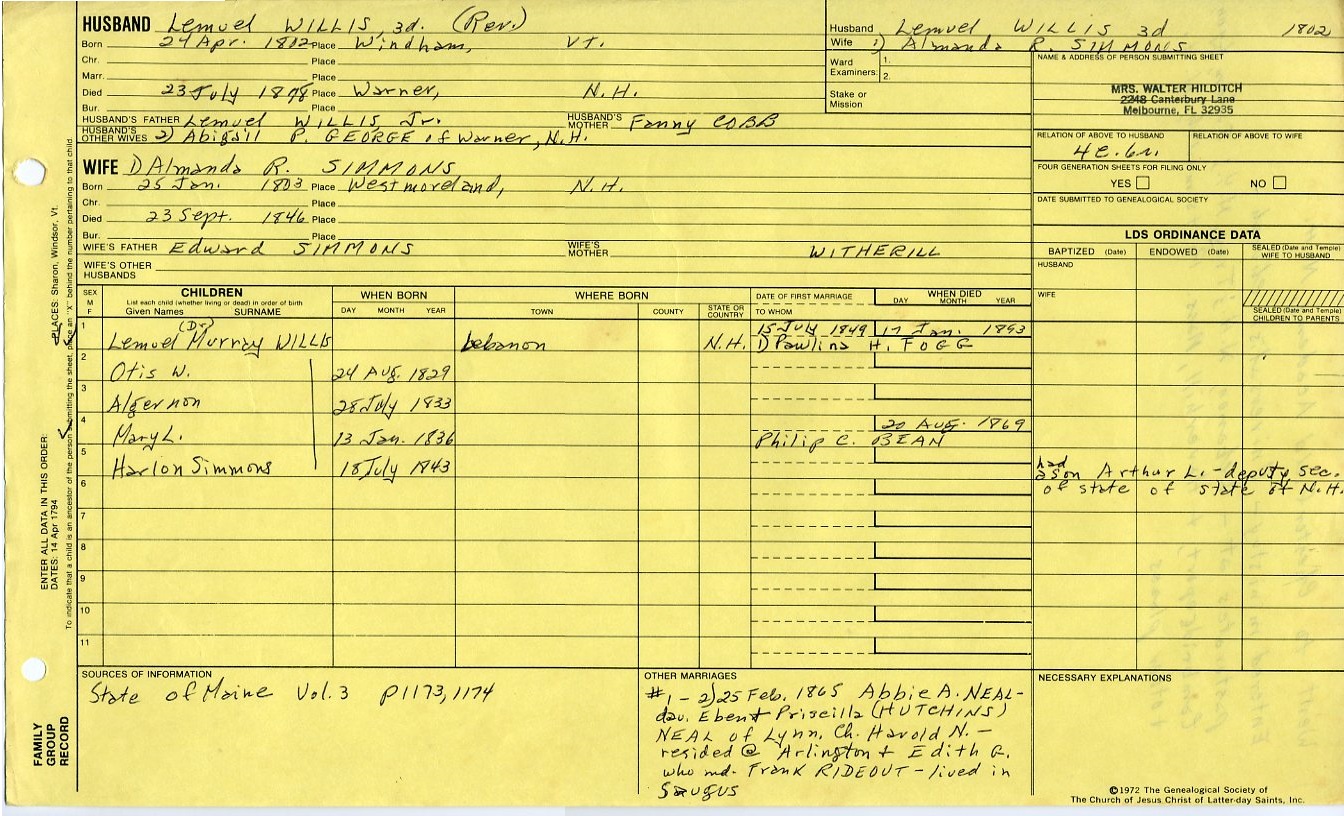 HUSBAND Lemuel WILLIS, 3d. (Rev.)
Born 24 Apr. 1802 Place Windham, Vt.
Chr. Place
Marr. Place
Died 23 July 1878 Place Warner, N.H.
Bur. Place
HUSBAND'S FATHER Lemuel WILLIS Jr. HUSBAND'S MOTHER Fanny COBB
HUSBAND'S OTHER WIVES 2) Abigail P. GEORGE of Warner, N.H.
WIFE 1) Almanda R. SIMMONS
Born 25 Jan. 1803 Place Westmoreland, N.H.
Chr. Place
Died 23 Sept. 1846 Place
Bur. Place
WIFE'S FATHER Edward SIMMONS WIFE'S MOTHER WITHERILL
WIFE'S OTHER HUSBANDS
Husband Lemuel WILLIS 3d 1802
Wife 1) Almanda R. SIMMONS
Ward Examiners: 1.
2.
Stake or Mission
NAME & ADDRESS OF PERSON SUBMITTING SHEET
MRS. WALTER HILDITCH
2248 Canterbury Lane
Melbourne, FL 32935
RELATION OF ABOVE TO HUSBAND RELATION OF ABOVE TO WIFE
4c. 6r.
FOUR GENERATION SHEETS FOR FILING ONLY
YES NO
DATE SUBMITTED TO GENEALOGICAL SOCIETY
LDS ORDINANCE DATA
BAPTIZED (Date) ENDOWED (Date) SEALED (Date and Temple) WIFE TO HUSBAND
HUSBAND
WIFE
SEALED (Date and Temple) CHILDREN TO PARENTS
SEX M F
CHILDREN
List each child (whether living or dead) in order of birth
Given Names SURNAME
WHEN BORN
DAY MONTH YEAR
WHERE BORN
TOWN COUNTY STATE OR COUNTRY
DATE OF FIRST MARRIAGE
TO WHOM
WHEN DIED
DAY MONTH YEAR
1 (Dr) Lemuel Murray WILLIS Lebanon N.H. 15 July 1849 17 Jan. 1893
1) Pawlina H. FOGG
2 Otis W. 24 Aug. 1829
3 Algernon 28 July 1833
4 Mary L. 13 Jan. 1836 Philip C. BEAN 20 AUG. 1869
5 Harlon Simmons 18 July 1843
had a son Arthur L. - deputy sec.
of state of state of N.H.
6
7
8
9
10
11
SOURCES OF INFORMATION
State of Maine Vol. 3 p1173, 1174
OTHER MARRIAGES
#1 - 2) 25 Feb. 1865 Abbie A. NEAL-
dau. Eben + Priscilla (HUTCHINS)
NEAL of Lynn. Ch. Harold N. -
resided @ Arlington + Edith G.
who md. Frank RIDEOUT - lived in
Saugus
NECESSARY EXPLANATIONS
©1972 The Genealogical Society of
The Church of Jesus Christ of Latter-day Saints, Inc.
ENTER ALL DATA IN THIS ORDER:
DATES: 14 Apr 1794
PLACES: Sharon, Windsor, Vt.
To indicate that a child is an ancestor of the person submitting the sheet, place an "X" behind the number pertaining to that child
FAMILY
GROUP
RECORD